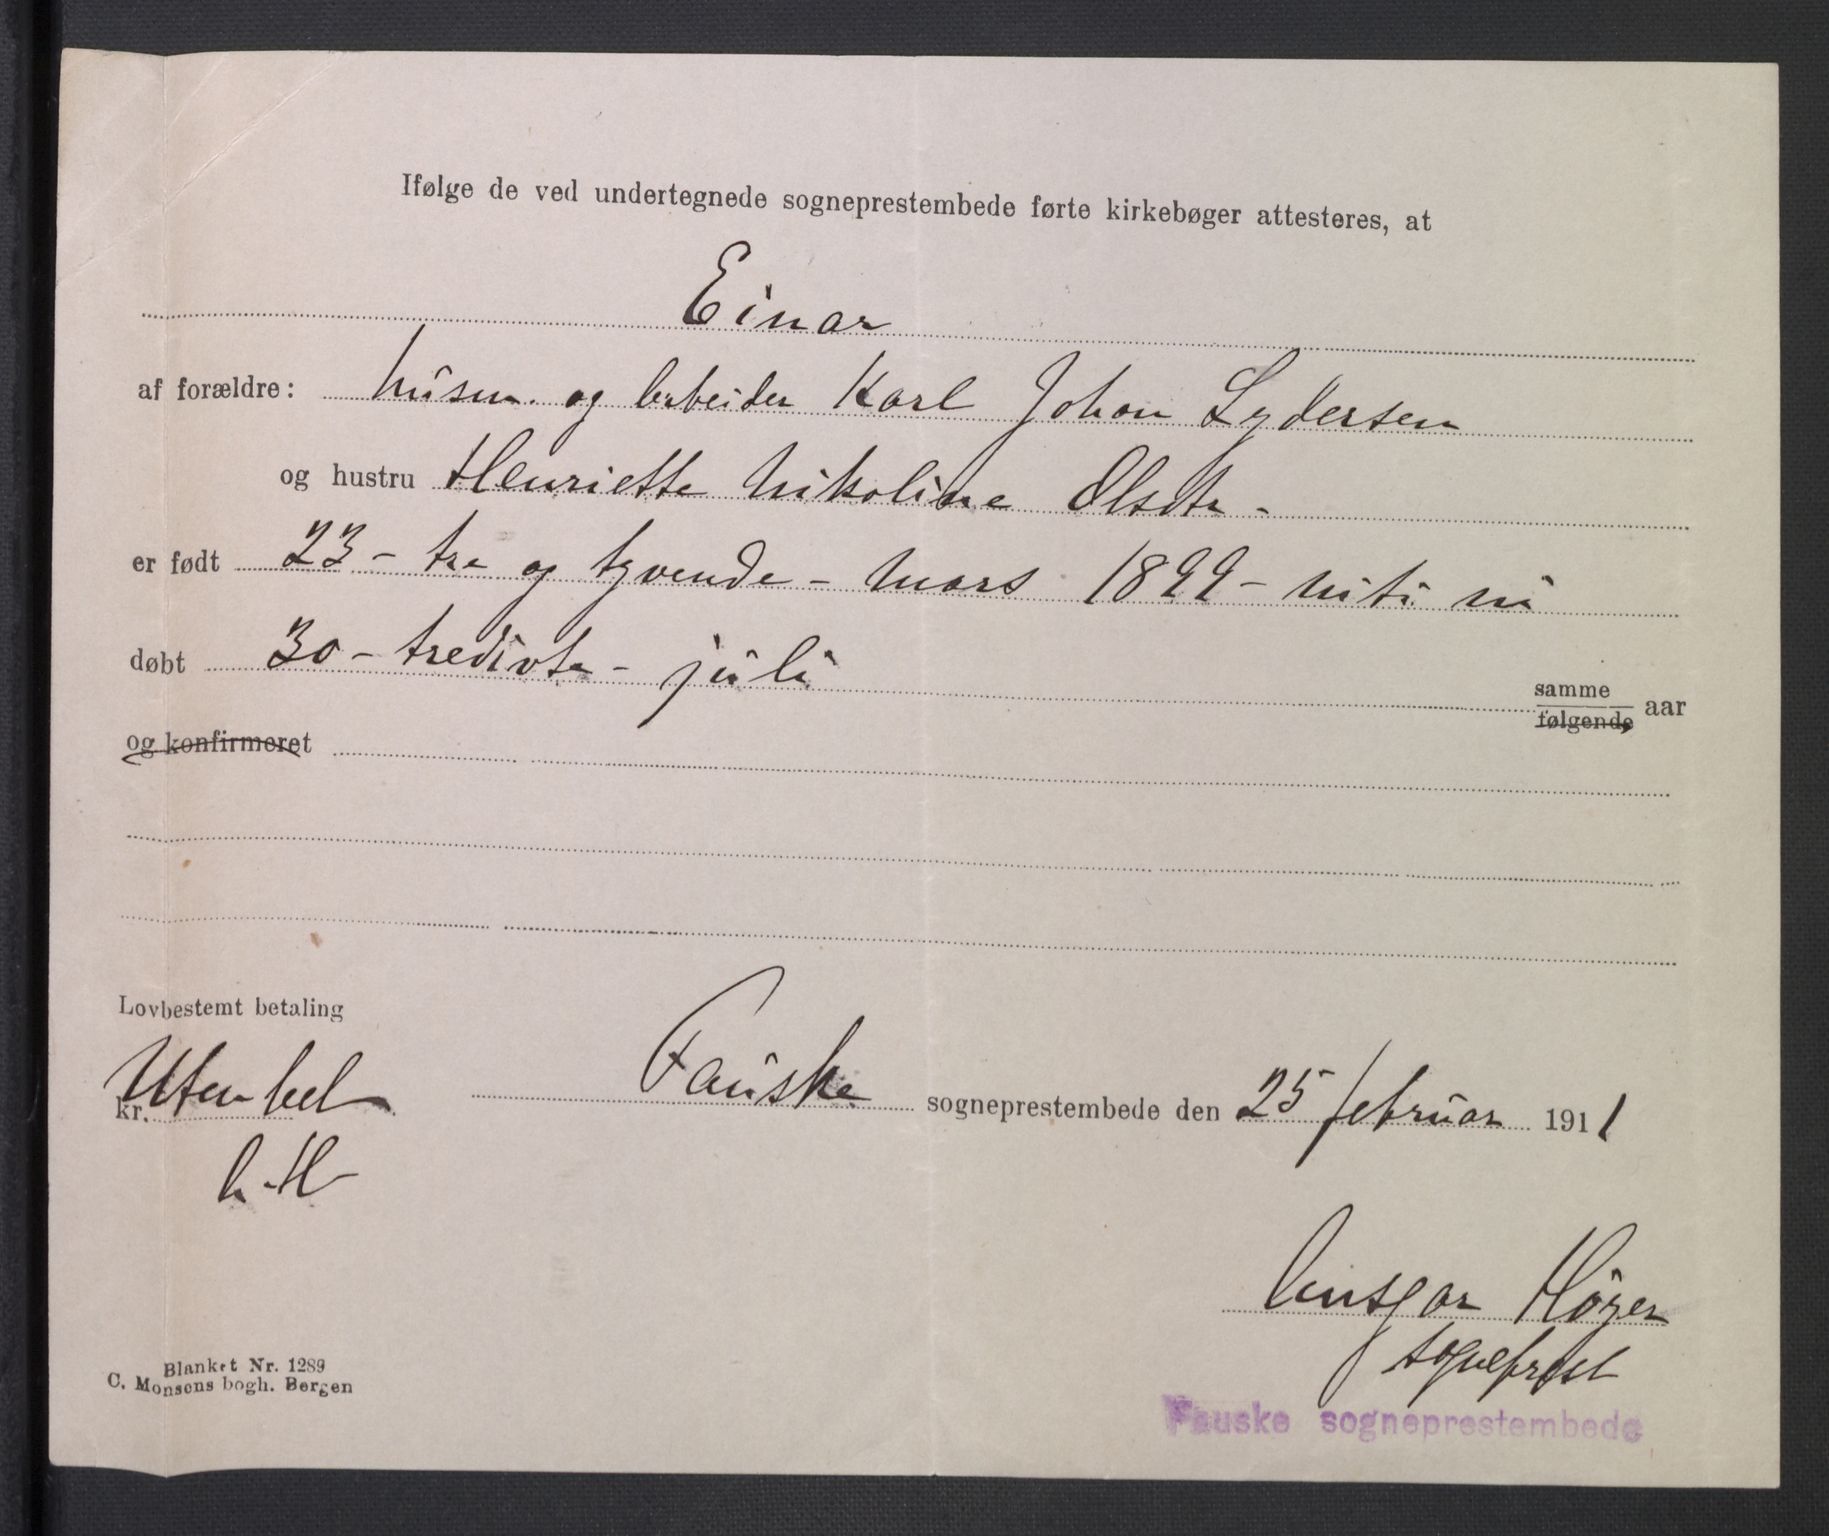 Ifølge de ved undertegnede sogneprestembede førte kirkebøger attesteres, at
Einar
af forældre: husm. og arbeider Karl Johan Lydersen
og hustru Henriette Nikoline Olsdtr.
er født 23 - tre og tyvende - mars 1899 - niti ni
døbt 30 - tredivte - juli samme følgende aar
og konfirmeret
Lovbestemt betaling
kr. Uten bet
A. H
Fauske sogneprestembede den 25 februar 1911
Ansgar Höyer
sogneprest
Fauske sogneprestembede
Blanket Nr. 1289
C. Monsens bogh. Bergen